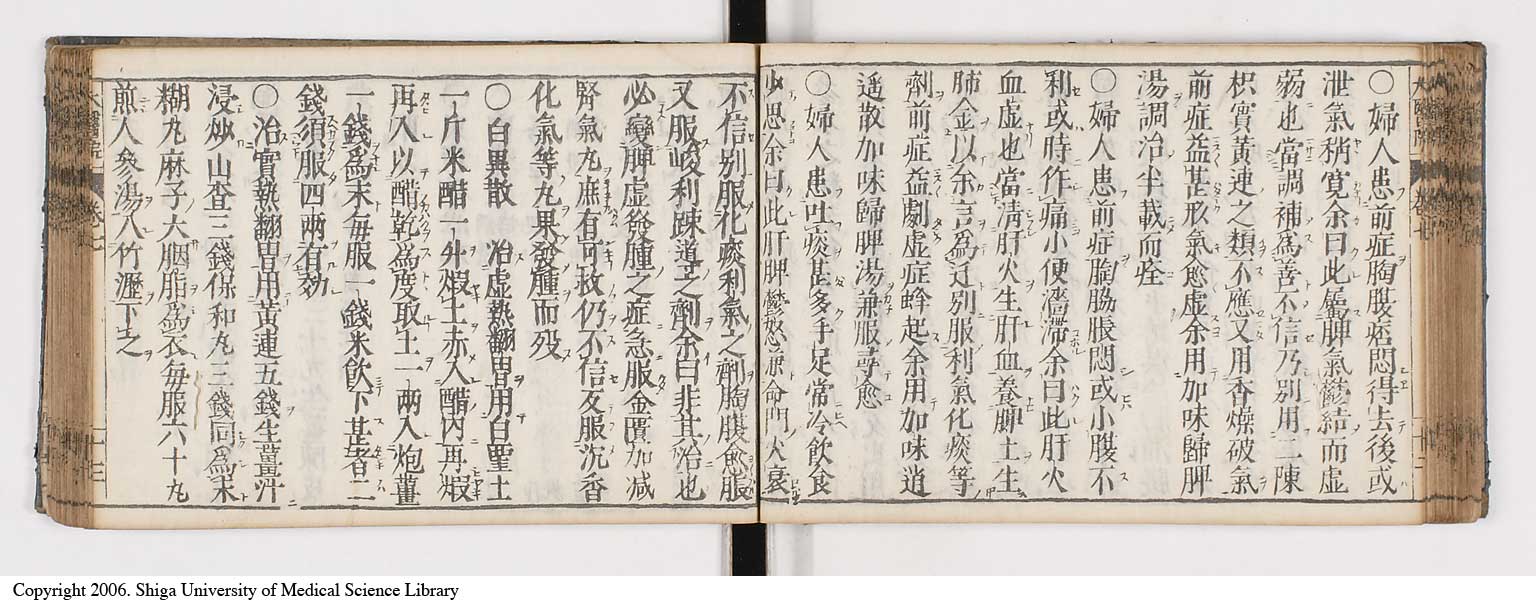 〇婦人患前症胸腹痞悶得去後或
泄氣稍寛余曰此屬脾氣鬱結而虚
弱也當調補為善不信乃別用二陳
枳實黄連之類不應又用香燥破氣
前症益甚形氣愈虚余用加味歸脾
湯調治半載而痊
〇婦人患前症胸脇脹悶或小腹不
利或時作痛小便濇滞余曰此肝火
血虚也當清肝火生肝血養脾土生
肺金以余言為迂別服利氣化痰等
劑前症益劇虚症蜂起余用加味逍
遥散加味歸脾湯兼服尋愈
〇婦人患吐痰甚多手足常冷飲食
少思余曰此肝脾鬱怒兼命門火衰
不信別服化痰利氣之劑胸腹愈脹
又服峻利疎道之劑余曰非其治也
必變脾虚發腫之症急服金匱加減
腎氣丸庶有可救仍不信反服沉香
化氣等丸果發腫而歿
〇白異散 治虚熱翻胃用白堊土
一斤米醋一升煆土赤入醋内再煆
再入以醋乾爲度取土一兩入炮薑
一錢爲末毎服一錢米飲下甚者二
錢須服四兩有効
〇治實熱翻胃用黄連五錢生薑汁
浸炒山査三錢保和丸三錢同爲末
糊丸麻子大胭脂爲衣毎服六十丸
煎人參湯入竹瀝下之
Copyright 2006. Shiga University of Medical Science Library